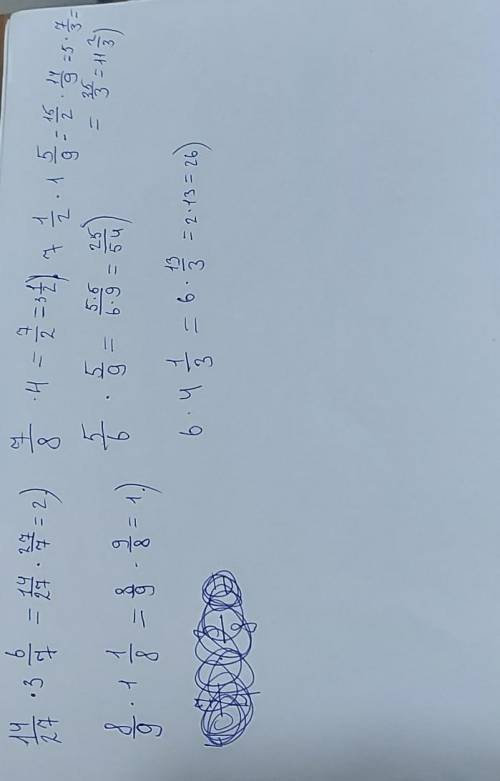 14/27 · 3 6/7 = 14/27 · 27/7 = 2)
8/9 · 1 1/8 = 8/9 · 9/8 = 1)
7/8 · 4 = 7/2 = 3 1/2)
5/6 · 5/9 = 5·5/6·9 = 25/54)
6 · 4 1/3 = 6 · 13/3 = 2·13 = 26)
7 1/2 · 1 5/9 = 15/2 · 14/9 = 5 · 7/3 =
= 35/3 = 11 2/3)